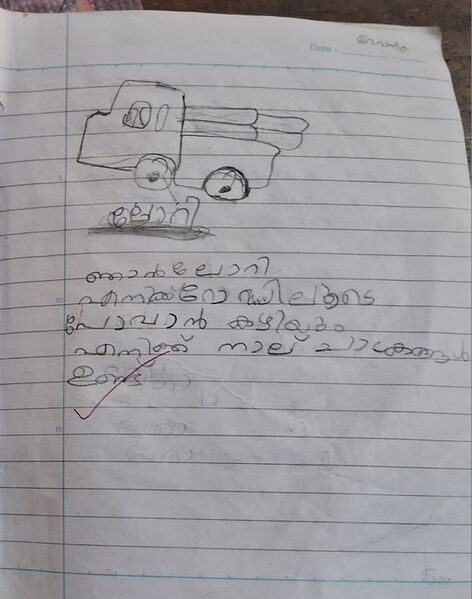 Date :
ദേവനന്ദ
ലോറി
ഞാൻ ലോറി
എനിക്ക് റോഡിലൂടെ
പോവാൻ കഴിയും
എനിക്ക് നാല് ചക്രങ്ങൾ
ഉണ്ട്
5
10
15